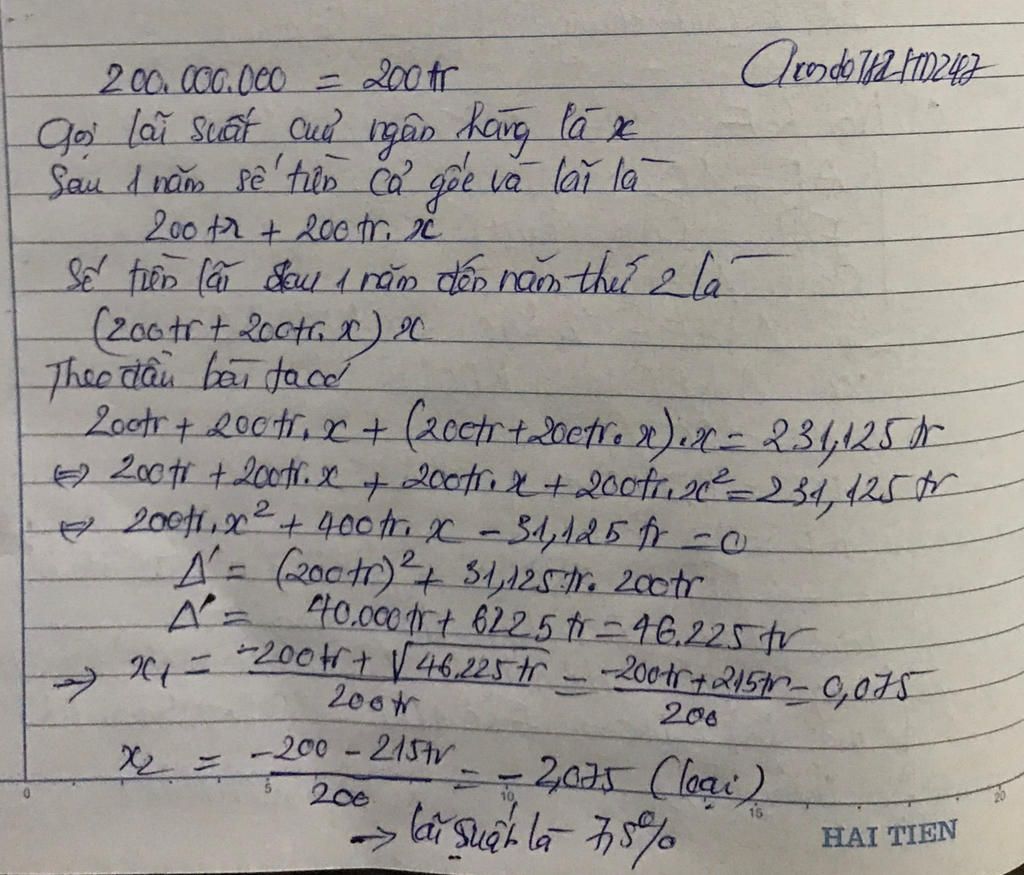 200.000.000 = 200tr
Gọi lãi suất cuả ngân hàng là x
Sau 1 năm số tiền cả gốc và lãi là
200tr + 200tr. x
Số tiền lãi sau 1 năm đến năm thứ 2 là
(200tr + 200tr. x) x
Theo đầu bài ta có
200tr + 200tr. x + (200tr + 200tr. x).x = 231,125 tr
⇔ 200tr + 200tr. x + 200tr. x + 200tr. x² = 231,125 tr
⇔ 200tr. x² + 400tr. x - 31,125 tr = 0
Δ' = (200tr)² + 31,125tr. 200tr
Δ' = 40.000tr + 6225 tr = 46.225 tr
⇒ x₁ = (-200tr + √46.225 tr) / 200tr = (-200tr + 215tr) / 200 = 0,075
x₂ = (-200 - 215tr) / 200 = - 2,075 (loại)
→ lãi suất là 7,5%
0 5 10 15 20
HAI TIEN